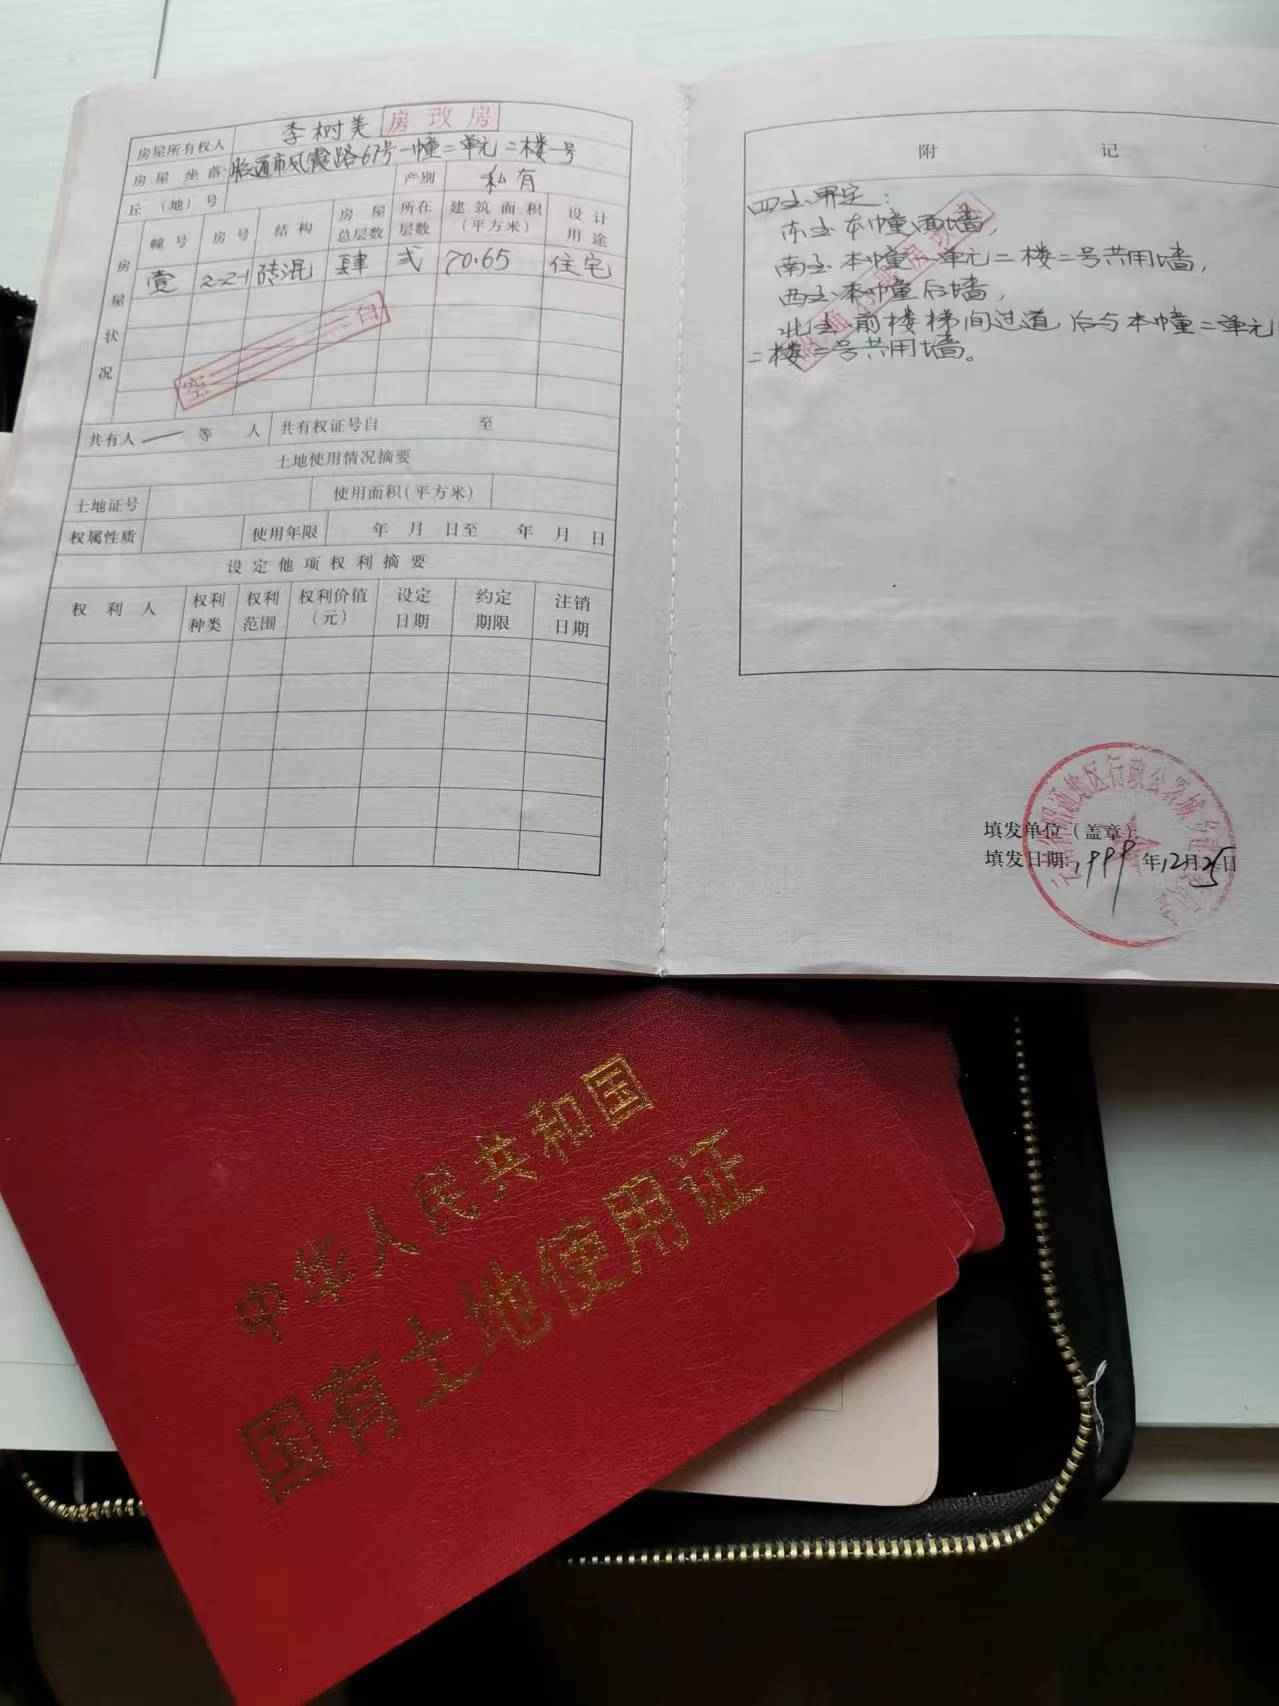 房屋所有权人 李树美 房改房
房屋坐落 昭通市凤霞路67号一幢二单元二楼一号
丘（地）号 产别 私有
房屋状况 幢号 房号 结构 房屋总层数 所在层数 建筑面积（平方米） 设计用途
壹 2-2-1 砖混 肆 贰 70.65 住宅
空 白
共有人 等 人 共有权证号自 至
土地使用情况摘要
土地证号 使用面积（平方米）
权属性质 使用年限 年 月 日至 年 月 日
设定他项权利摘要
权利人 权利种类 权利范围 权利价值（元） 设定日期 约定期限 注销日期
附 记
四至界定：
东至本幢西墙，
南至本幢一单元二楼二号共用墙，
西至本幢后墙，
北至前楼梯间过道后与本幢二单元
二楼二号共用墙。
填发单位（盖章）
填发日期：1999年12月25日
中华人民共和国
国有土地使用证